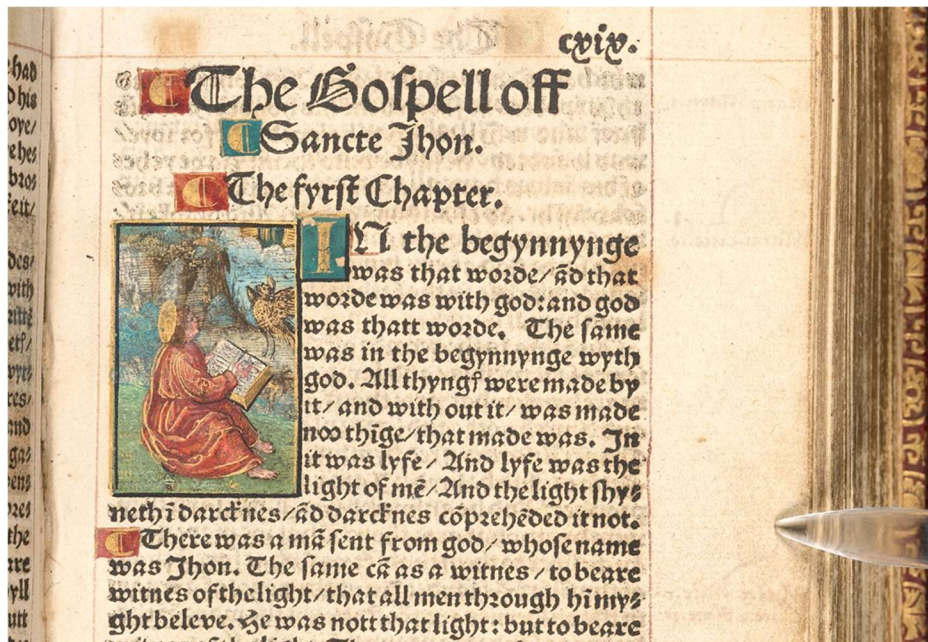 cxix.
¶The Goſpell off
¶Sancte Jhon.
¶The fyrſt Chapter.
IN the begynnynge
was that worde/ãd that
worde was with god: and god
was thatt worde. The ſame
was in the begynnynge wyth
god. All thyngꝭ were made by
it/ and with out it/ was made
noo thĩge/that made was. In
it was lyfe/ And lyfe was the
light of mẽ/And the light ſhy⸗
neth ĩ darcknes/ãd darcknes cõprehẽded it not.
¶There was a mã ſent from god/ whoſe name
was Jhon. The ſame cã as a witnes/ to beare
witnes of the light/ that all men through hĩ my⸗
ght beleve. He was nott that light: but to beare